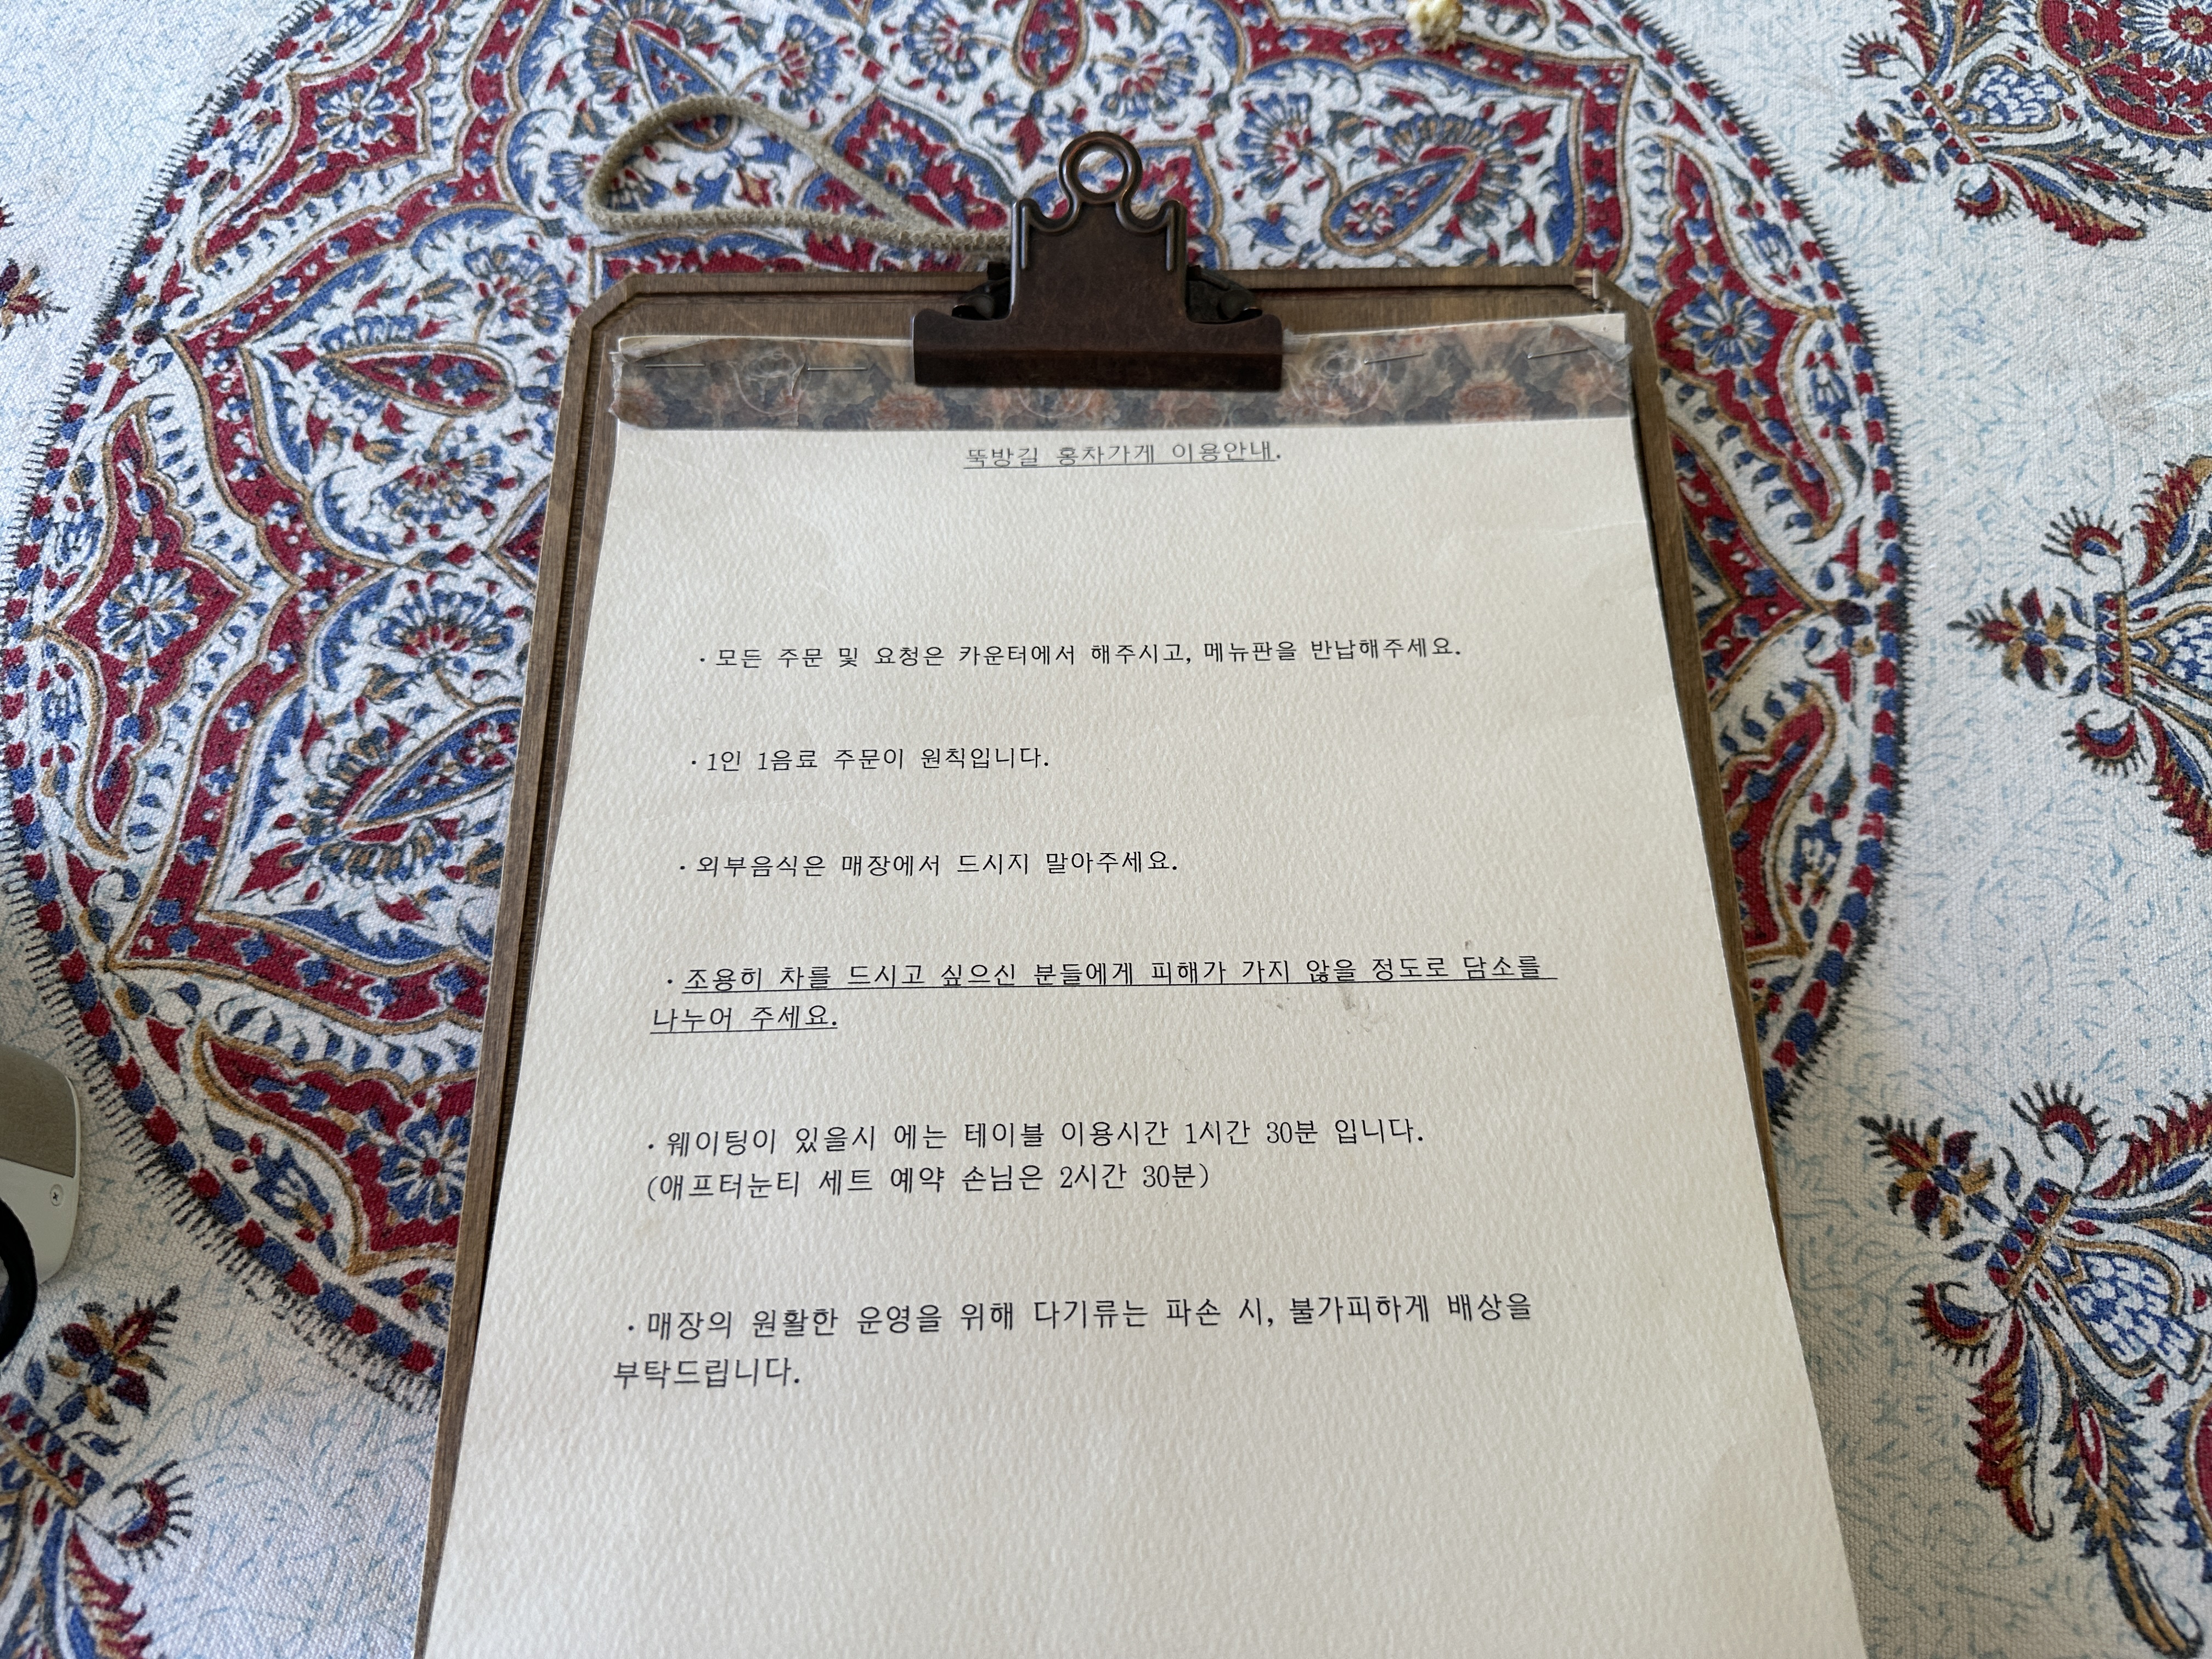 뚝방길 홍차가게 이용안내.
· 모든 주문 및 요청은 카운터에서 해주시고, 메뉴판을 반납해주세요.
· 1인 1음료 주문이 원칙입니다.
· 외부음식은 매장에서 드시지 말아주세요.
· 조용히 차를 드시고 싶으신 분들에게 피해가 가지 않을 정도로 담소를
나누어 주세요.
· 웨이팅이 있을시 에는 테이블 이용시간 1시간 30분 입니다.
(애프터눈티 세트 예약 손님은 2시간 30분)
· 매장의 원활한 운영을 위해 다기류는 파손 시, 불가피하게 배상을
부탁드립니다.